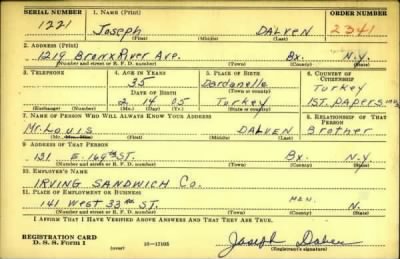 SERIAL NUMBER 1. NAME (Print) ORDER NUMBER
1221 Joseph DALVEN 2341
(First) (Middle) (Last)
2. ADDRESS (Print)
1219 Bronx River Ave. Bx. N.Y.
(Number and street or R. F. D. number) (Town) (County) (State)
3. TELEPHONE 4. AGE IN YEARS 5. PLACE OF BIRTH 6. COUNTRY OF CITIZENSHIP
35 Dardanelle Turkey
DATE OF BIRTH (Town or county)
2 14 05 Turkey 1ST. PAPERS
(Exchange) (Number) (Mo.) (Day) (Yr.) (State or country)
7. NAME OF PERSON WHO WILL ALWAYS KNOW YOUR ADDRESS 8. RELATIONSHIP OF THAT PERSON
Mr. Louis DALVEN Brother
(Mr., Mrs., Miss) (First) (Middle) (Last)
9. ADDRESS OF THAT PERSON
131 E. 169th ST. Bx. N.Y.
(Number and street or R. F. D. number) (Town) (County) (State)
10. EMPLOYER'S NAME
IRVING SANDWICH Co.
11. PLACE OF EMPLOYMENT OR BUSINESS
141 West 33RD ST. N.
(Number and street or R. F. D. number) (Town) (County) (State)
I AFFIRM THAT I HAVE VERIFIED ABOVE ANSWERS AND THAT THEY ARE TRUE.
REGISTRATION CARD
D. S. S. Form 1 (over) 16-17105 Joseph Dalven
(Registrant's signature)